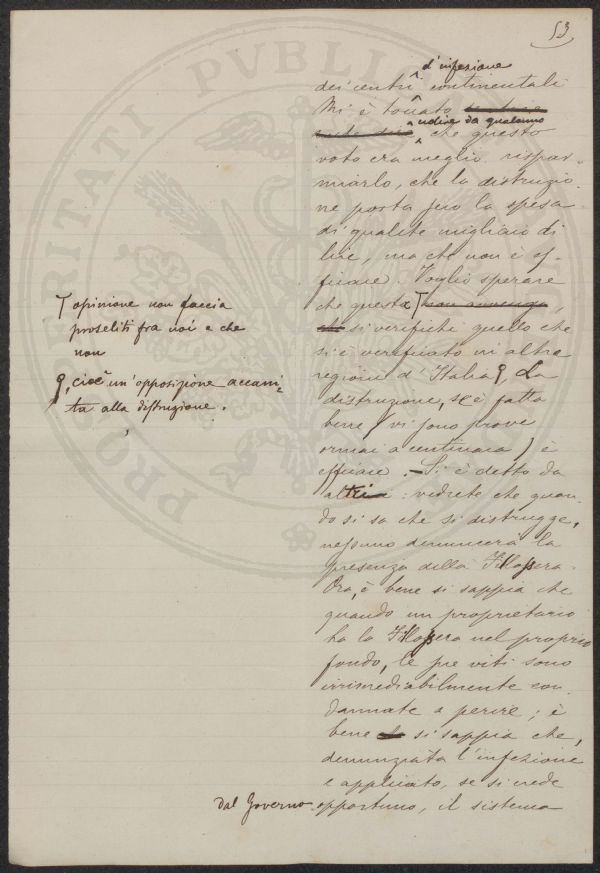 53
d'infezione
dei centri continentali
Mi è toccato
udire da qualcuno
che questo
voto era meglio rispar-
miarlo, che la distruzio-
ne porta seco la spesa
di qualche migliaio di
lire, ma che non è ef-
ficace. Voglio sperare
che questa non avvenga,
si verifichi quello che
si è verificato in altre
regioni d'Italia. La
distruzione, se è fatta
bene (vi sono prove
ormai a centinaia) è
efficace. - Si è detto da
altri: vedrete che quan-
do si sa che si distrugge,
nessuno denuncerà la
presenza della Fillossera.
Ora, è bene si sappia che
quando un proprietario
ha la Fillossera nel proprio
fondo, le sue viti sono
irrimediabilmente con-
dannate a perire; è
bene si sappia che,
denunziata l'infezione
e applicato, se si crede
opportuno, il sistema
opinione non faccia
proseliti fra noi e che
non
, cioè un'opposizione accani-
ta alla distruzione.
dal Governo
PROSPERITATI PUBLICAE